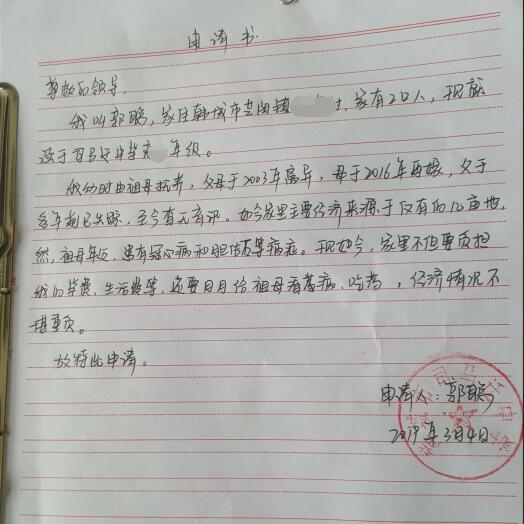 申请书
尊敬的领导,
我叫郭鹏,家住韩城市芝川镇村,家有2口人,现就
读于司马迁中学高年级。
我幼时由祖母抚养,父母于2003年离异,母于2016年再嫁,父于
多年前已失踪,至今杳无音讯。如今家里主要经济来源于仅有的几亩地,
然,祖母年迈,患有冠心病和胆结石等病症。现如今,家里不但要负担
我的学费、生活费等,还要日日给祖母看病、吃药,经济情况不
堪重负。
故特此申请。
申请人:郭鹏
2019年3月4日